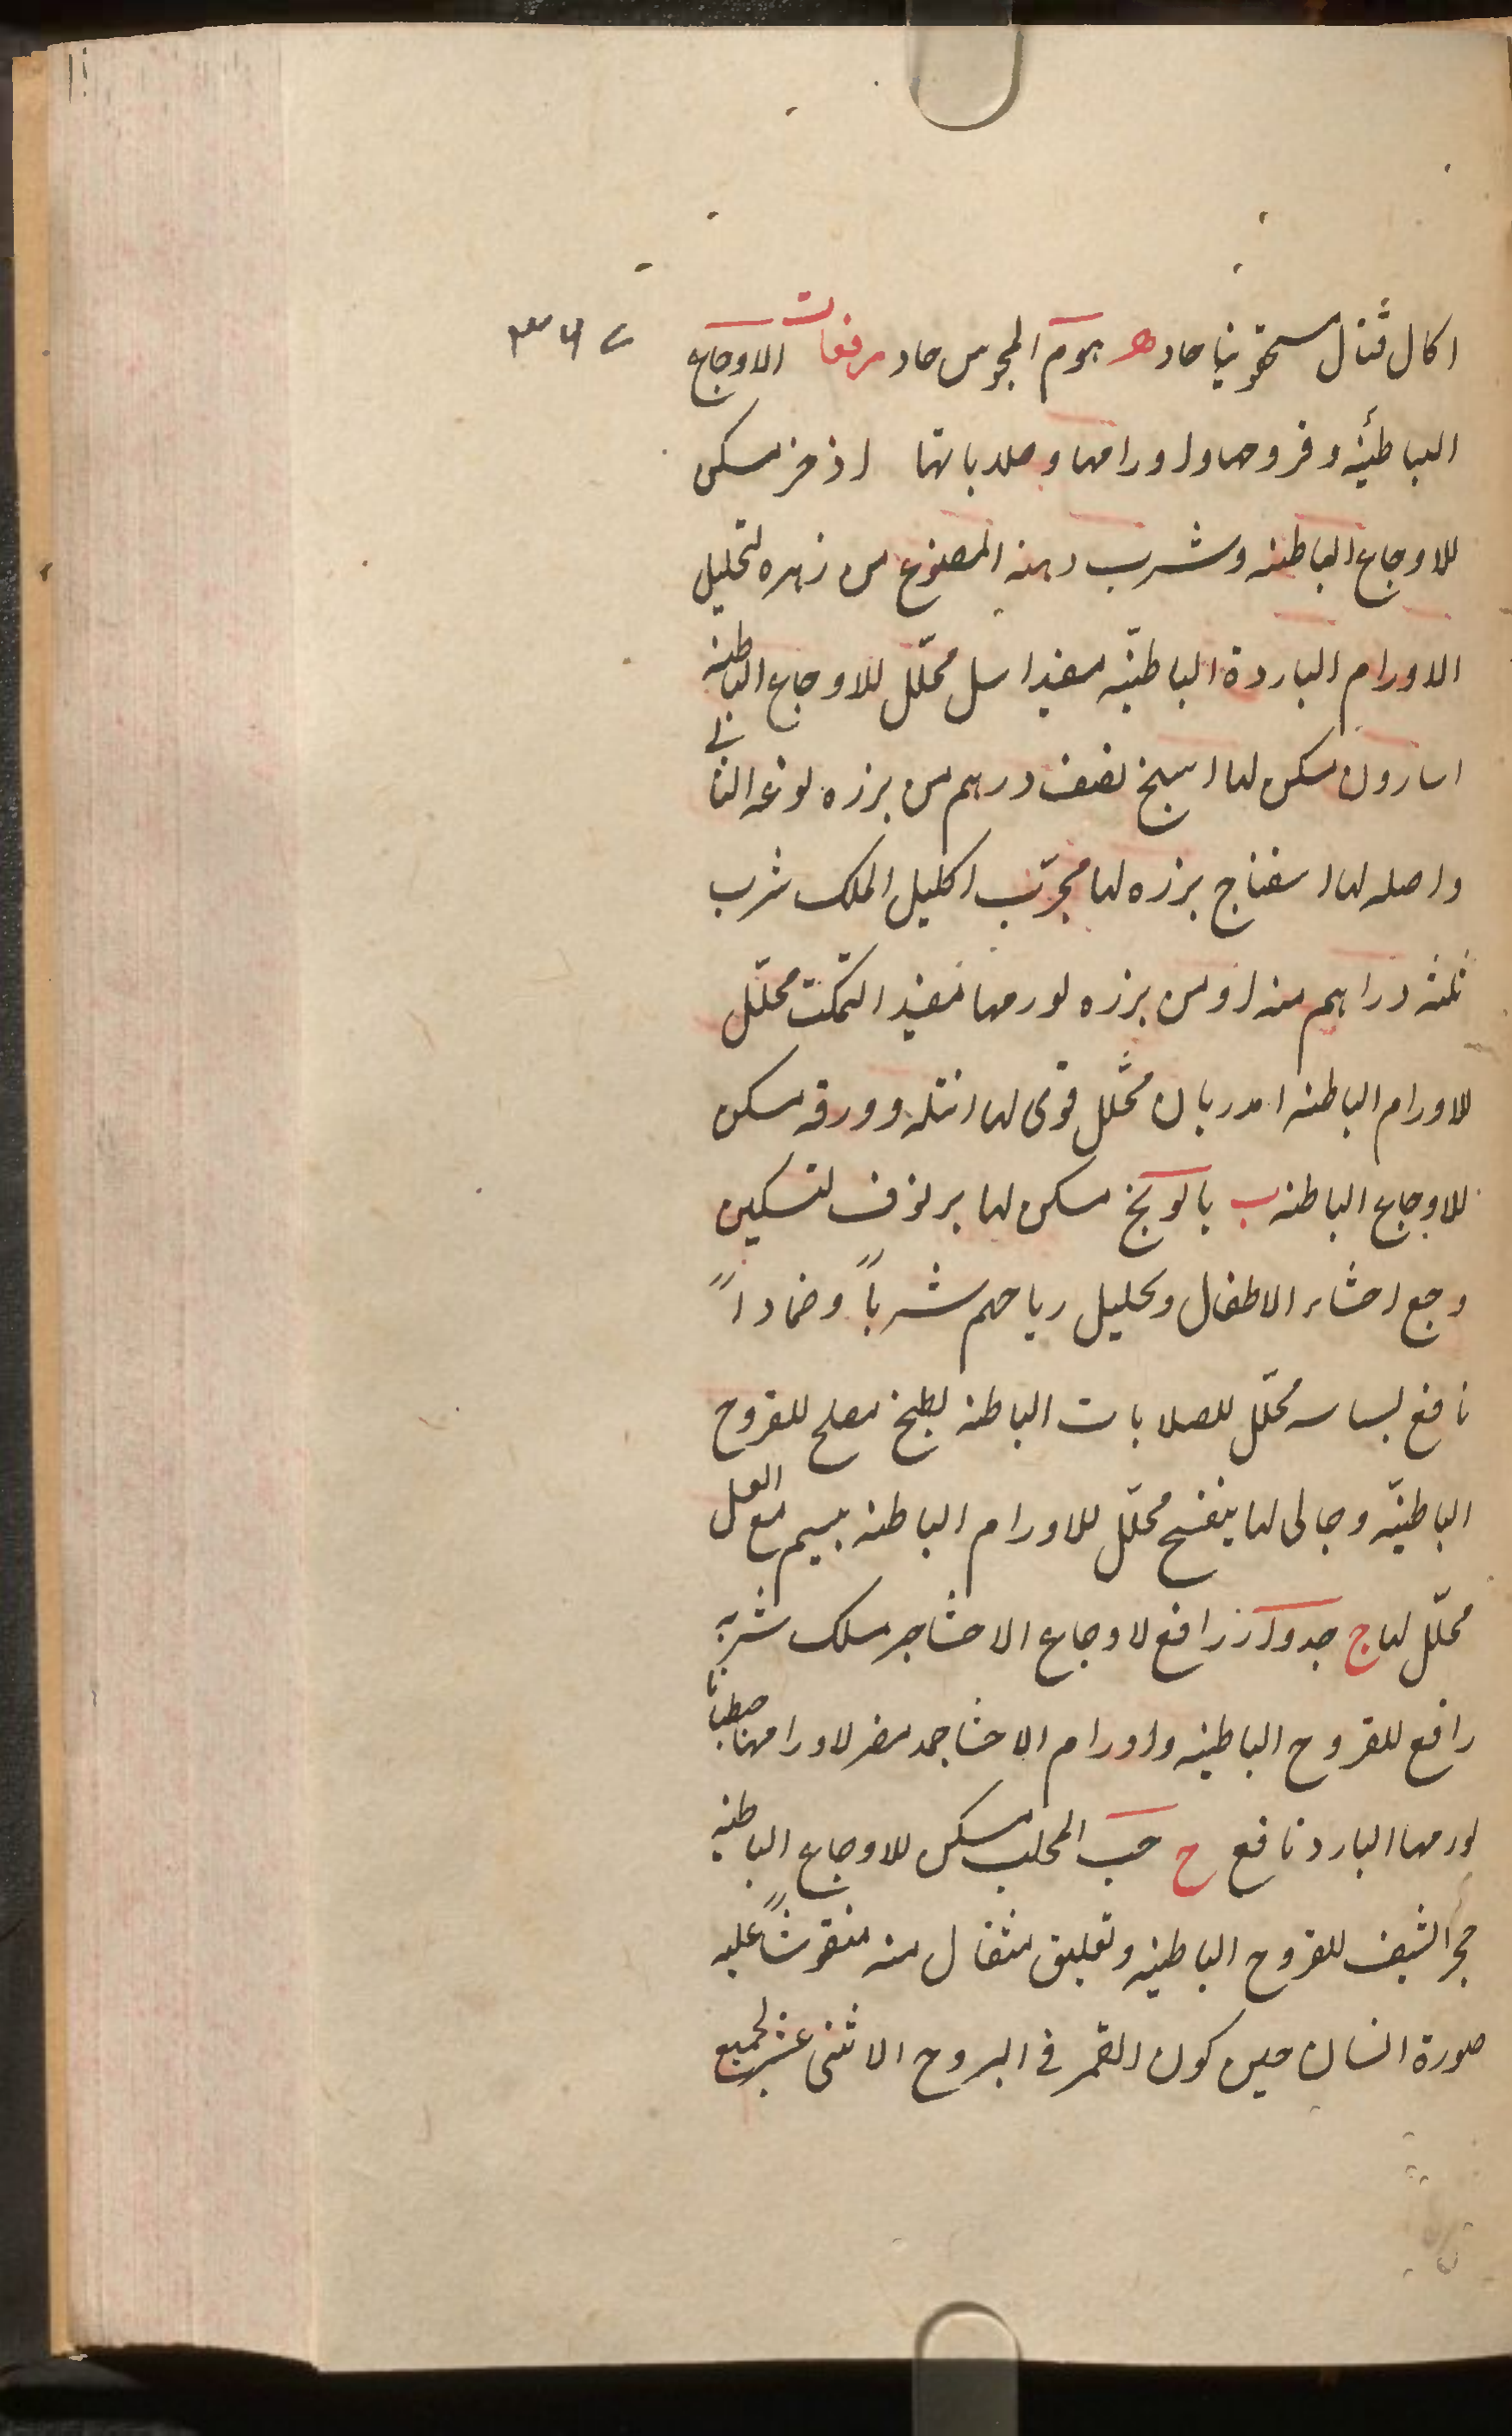 اكال قتال سقمونيا حاد ه هوم المجوس حاد مرفعات الاوجاع
٣٧٤
الباطنية وقروحها واورامها وصلاباتها اذخر مسكن
للاوجاع الباطنه وشرب دهنه المصنوع من زهره لتحليل
الاورام الباردة الباطنيّه مفيد اسل محلّل للاوجاع الباطنيه
اسارون مسكن لها نصف درهم من بزره لوعه الثانى
واصله لها اسفناج بزره لها مجرّب اكليل الملك شرب
ثلثه دراهم منه او من بزره لورمها مفيد التمكت محلّل
للاورام الباطنه محلّل قوى لها اثله وورقه مسكن
للاوجاع الباطنه ب بابونج مسكن لها برنوف لتسكين
وجع احشاء الاطفال وتحليل رياحهم شرباً وضماداً
نافع بسباسه محلّل للصلابات الباطنه بطيخ مصلح للقروح
الباطنيّه وجالى لها بنفسج محلّل للاورام الباطنه مع العسل
محلّل لها ج جدوار رافع لاوجاع الاحشا شربه
رافع للقروح الباطنيه واورام الاحشا جمد مضر لاورامها
لورمها البارد نافع ح حب المحلب مسكن للاوجاع الباطنيه
حجر الشيف للقروح الباطنيه وتعليق مثقال منه منقوشاً عليه
صورة انسان حين كون القمر فى البروج الاثنى عشر لجميع